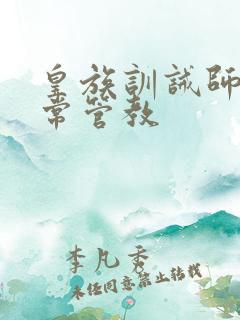 皇族訓誡師
常管教
李凡秀
未经同意禁止转载